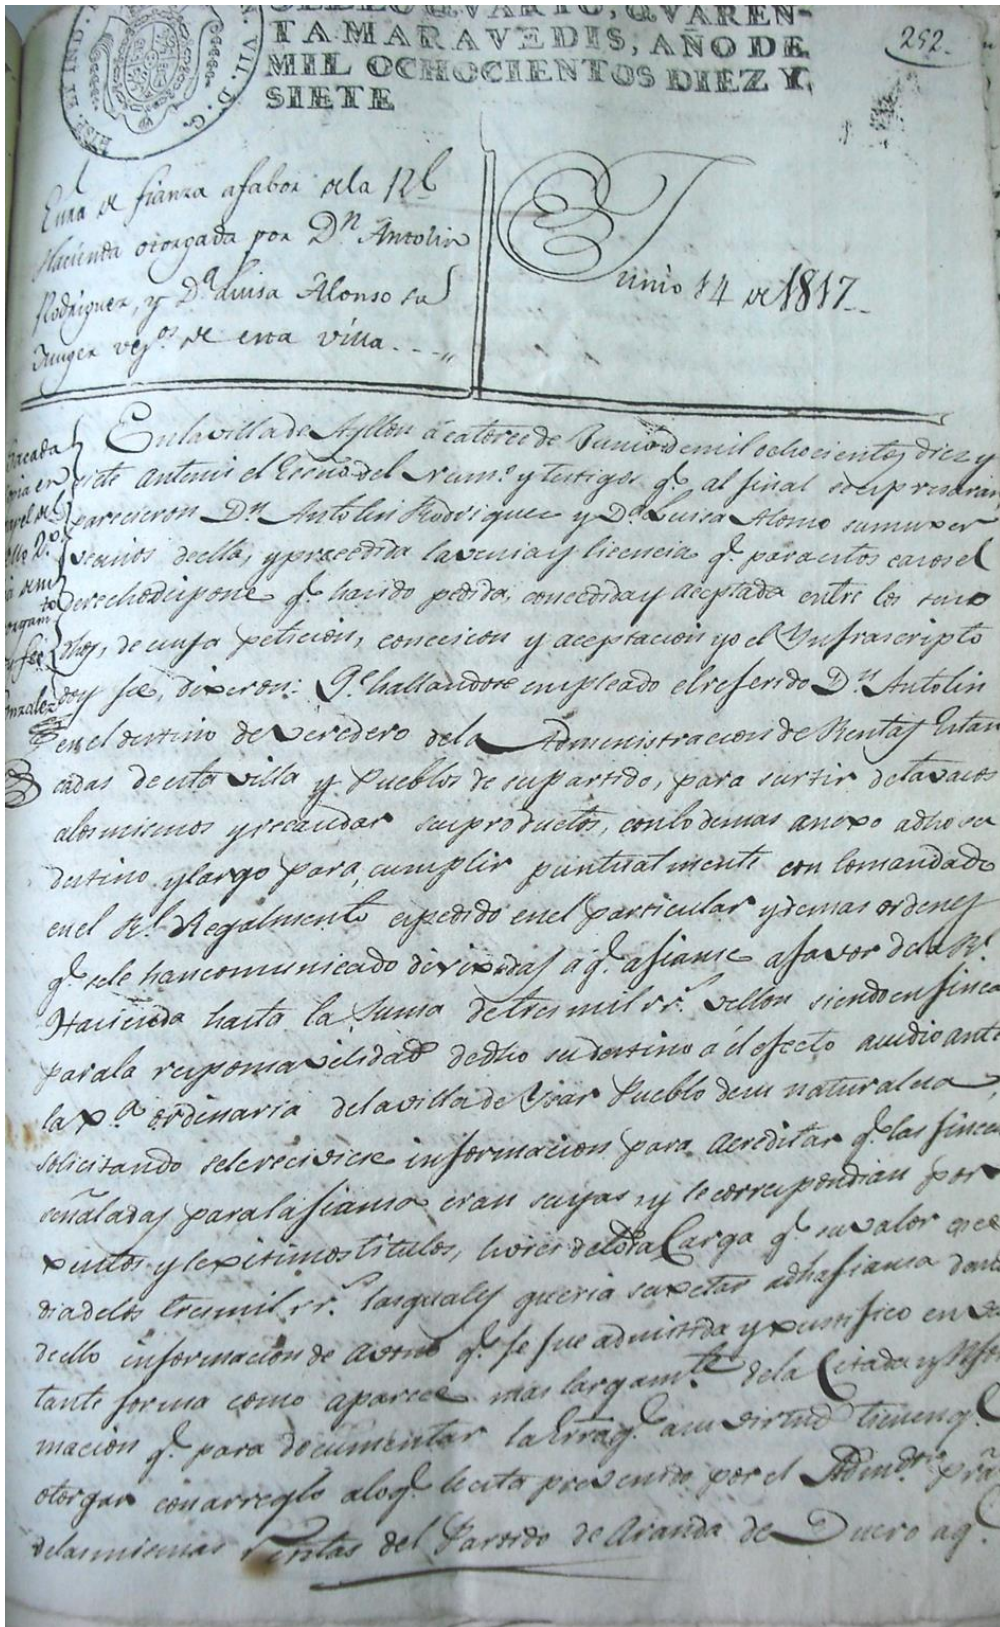 SELLO QVARTO, QVAREN-
TA MARAVEDIS, AÑO DE
MIL OCHOCIENTOS DIEZ Y
SIETE
252.
HISP. ET IND. VII. D. G.
de fianza a fabor de la Rl
Hacienda otorgada por Dn Antolin
Rodriguez, y Da Luisa Alonso su
Muger vezos de esta villa
Junio 14 de 1817
En la villa de Ayllon à catorce de Junio de mil ochocientos diez y
siete Antemi el Escno del Numo y testigos q. al final se expresaran
parecieron Dn Antolin Rodriguez y Da Luisa Alonso su muxer
vecinos de ella, y precedida la venia y licencia q. para estos casos el
derecho dispone q. haver sido pedida, concedida y aceptada entre los
dhos, de cuya peticion, concesion y aceptacion yo el Ynfrascripto
doy fee, dixeron: Qe hallandose empleado el referido Dn Antolin
en el destino de veredero de la Administracion de Rentas Estan
cadas de esta villa y Pueblos de su partido, para surtir de tavacos
a los mismos y recaudar sus productos, con lo demas anexo a dho su
destino y largo para cumplir puntualmente con lo mandado
en el Rl Regalmento expedido en el particular y demas ordenes
q. se le han comunicado dirixidas a q. afiance a favor de la Rl
Hacienda hasta la suma de tres mil rr. vellon siendo en fincas
para la responsavilidad de dho su destino á el efecto acudio ante
la Xa ordinaria de la villa de Pueblo de su naturaleza
solicitando se le reciviese informacion para acreditar q. las fincas
señaladas para la fianza eran suyas, y le correspondian por
xustos y lexitimos titulos, livres de toda Carga q. su valor exce
dia de los tres mil rr. las quales queria suxetar a dha fianza dando
de ello informacion de Avono q. se fue admitida y
tante forma como aparece mas largamte de la Citada Ynfor
macion q. para documentar la Essra q. a su virtud tienen q.
otorgar con arreglo a lo q. le esta prevenido por el Admor
de las mismas Rentas del Partido de Aranda de Duero a q.
Sacada
copia en
papel del
sello 2o